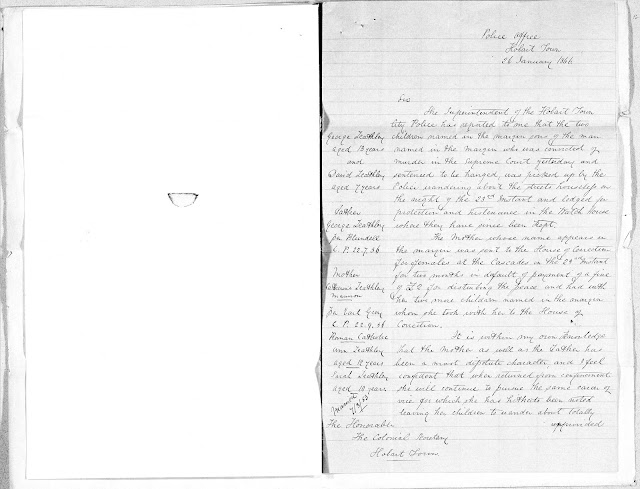 Police Office
Hobart Town
26 January 1866
Sir
The Superintendent of the Hobart Town
City Police has reported to me that the two
children named in the margin sons of the man
named in the margin who was convicted of
murder in the Supreme Court yesterday and
sentenced to be hanged, was picked up by the
Police wandering about the streets houseless on
the night of the 23rd Instant and lodged for
protection and sustenance in the Watch house
where they have since been kept.
The Mother whose name appears in
the margin was sent to the House of Correction
for females at the Cascades on the 24th Instant
for two months in default of payment of a fine
of £2 for disturbing the peace and had with
her two more children named in the margin
whom she took with her to the House of
Correction.
It is within my own knowledge
that the Mother as well as the Father has
been a most dissolute character and I feel
confident that when returned from confinement
she will continue to pursue the same career of
vice for which she has hitherto been noted
leaving her children to wander about totally
unprovided
George Leathley
aged 13 years
and
David Leathley
aged 7 years
Father
George Leathley
per Blundell
C. P. 22.7.56
Mother
Catherine Leathley
per Earl Grey
C. P. 22.9.56
Roman Catholic
Ann Leathley
aged 12 years
Sarah Leathley
aged 10 years
The Honorable
The Colonial Secretary
Hobart Town